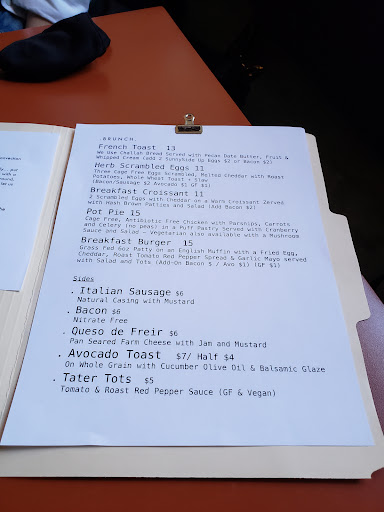 BRUNCH.
French Toast 13
We Use Challah Bread Served with Pecan Date Butter, Fruit &
Whipped Cream (add 2 Sunnyside Up Eggs $2 or Bacon $2)
Herb Scrambled Eggs 11
Three Cage Free Eggs Scrambled, Melted Cheddar with Roast
Potatoes, Whole Wheat Toast + Slaw
(Bacon/Sausage $2 Avocado $1 GF $1)
Breakfast Croissant 11
2 Scrambled Eggs with Cheddar on a Warm Croissant Served
with Hash Brown Patties and Salad (Add Bacon $2)
Pot Pie 15
Cage Free, Antibiotic Free Chicken with Parsnips, Carrots
and Celery (no peas) in a Puff Pastry Served with Cranberry
Sauce and Salad - Vegetarian also available with a Mushroom
Breakfast Burger 15
Grass Fed 6oz Patty on an English Muffin with a Fried Egg,
Cheddar, Roast Tomato Red Pepper Spread & Garlic Mayo served
with Salad and Tots (Add-On Bacon $ / Avo $1) (GF $1)
Sides
. Italian Sausage $6
Natural Casing with Mustard
. Bacon $6
Nitrate Free
. Queso de Freir $6
Pan Seared Farm Cheese with Jam and Mustard
. Avocado Toast $7/ Half $4
On Whole Grain with Cucumber Olive Oil & Balsamic Glaze
. Tater Tots $5
Tomato & Roast Red Pepper Sauce (GF & Vegan)